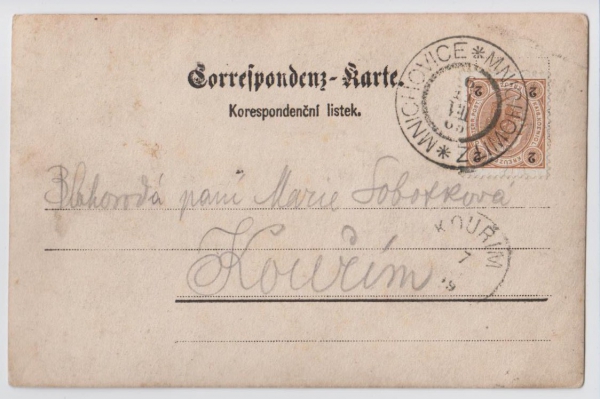 Correspondenz-Karte.
Korespondenční lístek.
MNICHOVICE * MNICHOWITZ *
2 2
2 2
Blahorodá paní Marie Sobotková
Kouřim
KOUŘIM
7